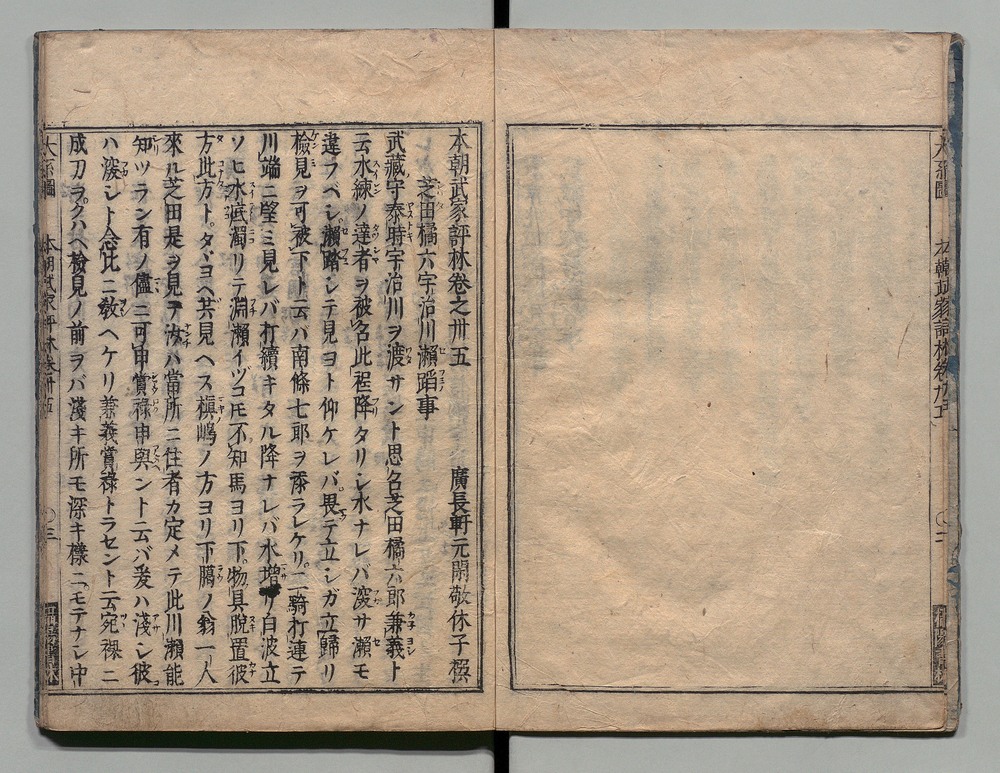 本朝武家評林卷之卅五　廣長軒元閑敬休子撰
芝田橘六宇治川瀬蹈事
武藏守泰時宇治川ヲ渡サント思召芝田橘六郎兼義ト
云水練ノ達者ヲ被召此程降タリシ水ナレバ深サ瀬モ
違フベシ瀬踏シテ見ヨト仰ケレバ畏テ立シガ立歸リ
檢見ヲ可被下ト云ハ南條七郎ヲ添ラレケリ二騎打連テ
川端ニ望ミ見レバ打續キタル降ナレバ水増リ白波立
ソヒ水底濁リテ淵瀬イヅコ圧不知馬ヨリ下物具脱置彼
方此方トタヾヨヘ共見ヘス槙嶋ノ方ヨリ下臈ノ翁一人
來ル芝田是ヲ見テ汝ハ當所ニ住者カ定メテ此川瀬能
知ツラン有ノ儘ニ可申賞祿申與ントニ云バ爰ハ淺シ彼
ハ深シト念比ニ教ヘケリ兼義賞祿トラセント云宛裸ニ
成刀ヲクハヘ檢見ノ前ヲバ淺キ所モ深キ樣ニモテナシ中
大系圖　本朝武家評林卷卅五　〇三